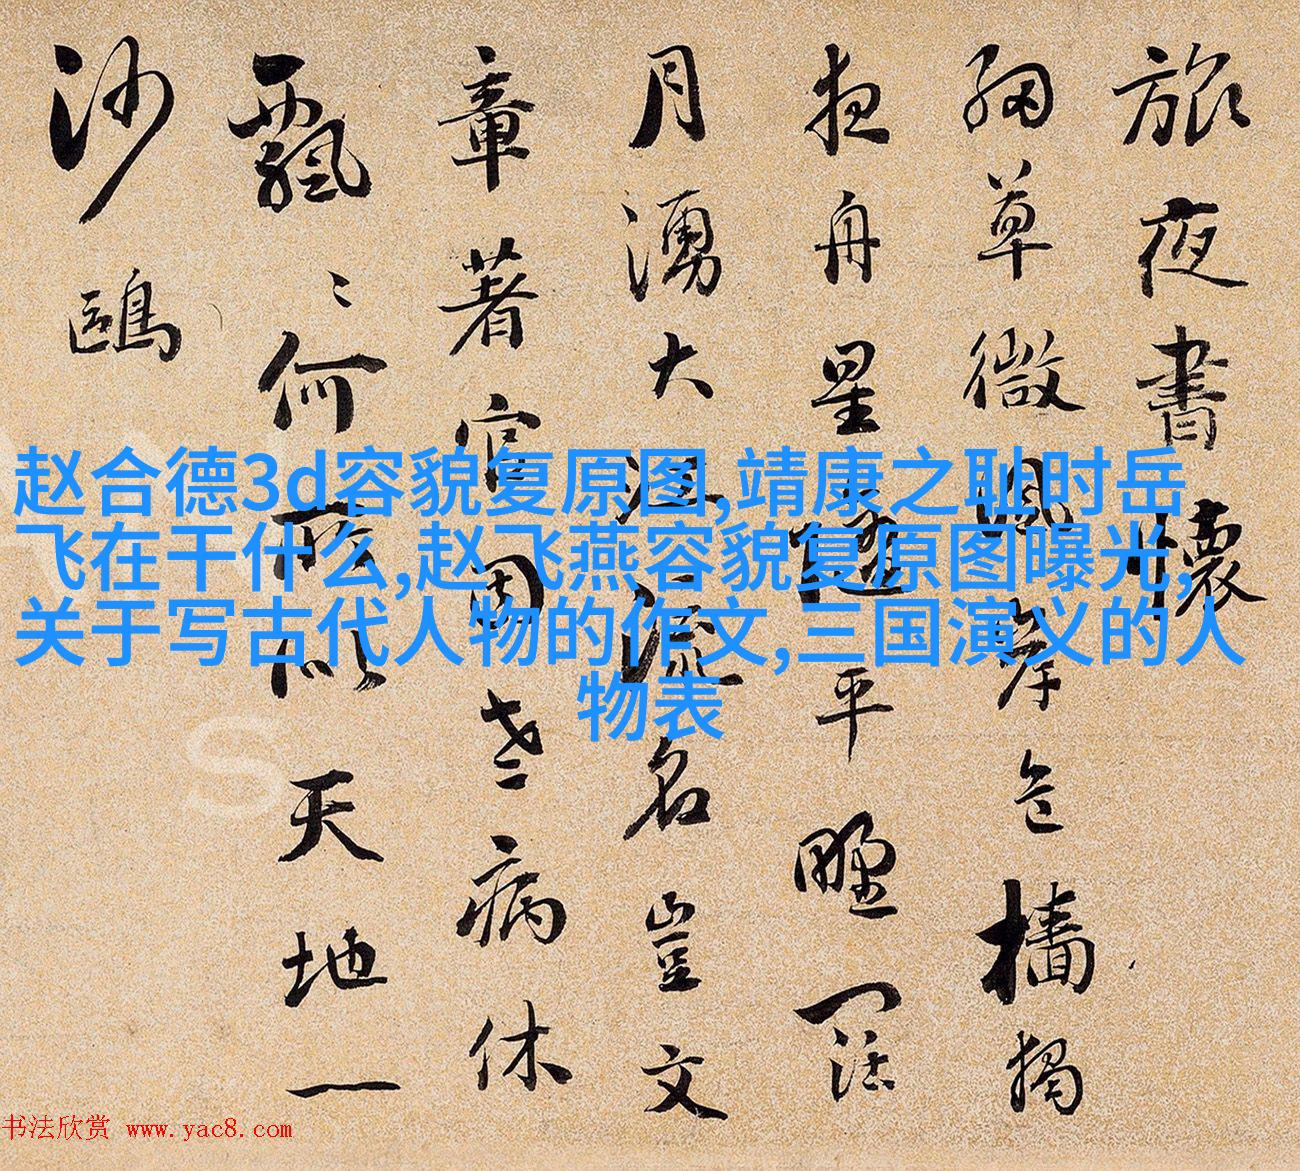 旅夜書懷
細草微風岸危檣獨
夜舟星垂平野闊
月湧大江流名豈文
章著官因老病休
飄〻何所似天地一
沙鷗
赵合德3d容貌复原图,靖康之耻时岳
飞在干什么,赵飞燕容貌复原图曝光,
关于写古代人物的作文,三国演义的人
物表
书法欣赏 www.yac8.com